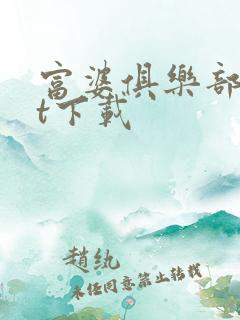 富婆俱樂部
t下載
趙紈
未經同意禁止轉載